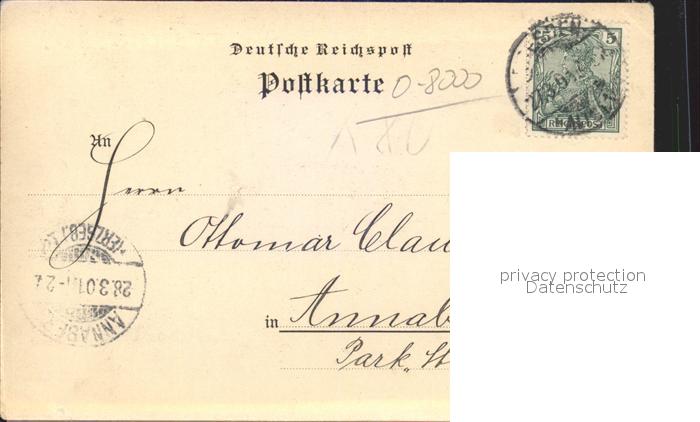 Deutsche Reichspost
Postkarte
0-8000
An
Herrn
Ottomar Clau
in Annab
Park. St
5
REICHSPOST
28.3.01
privacy protection
Datenschutz